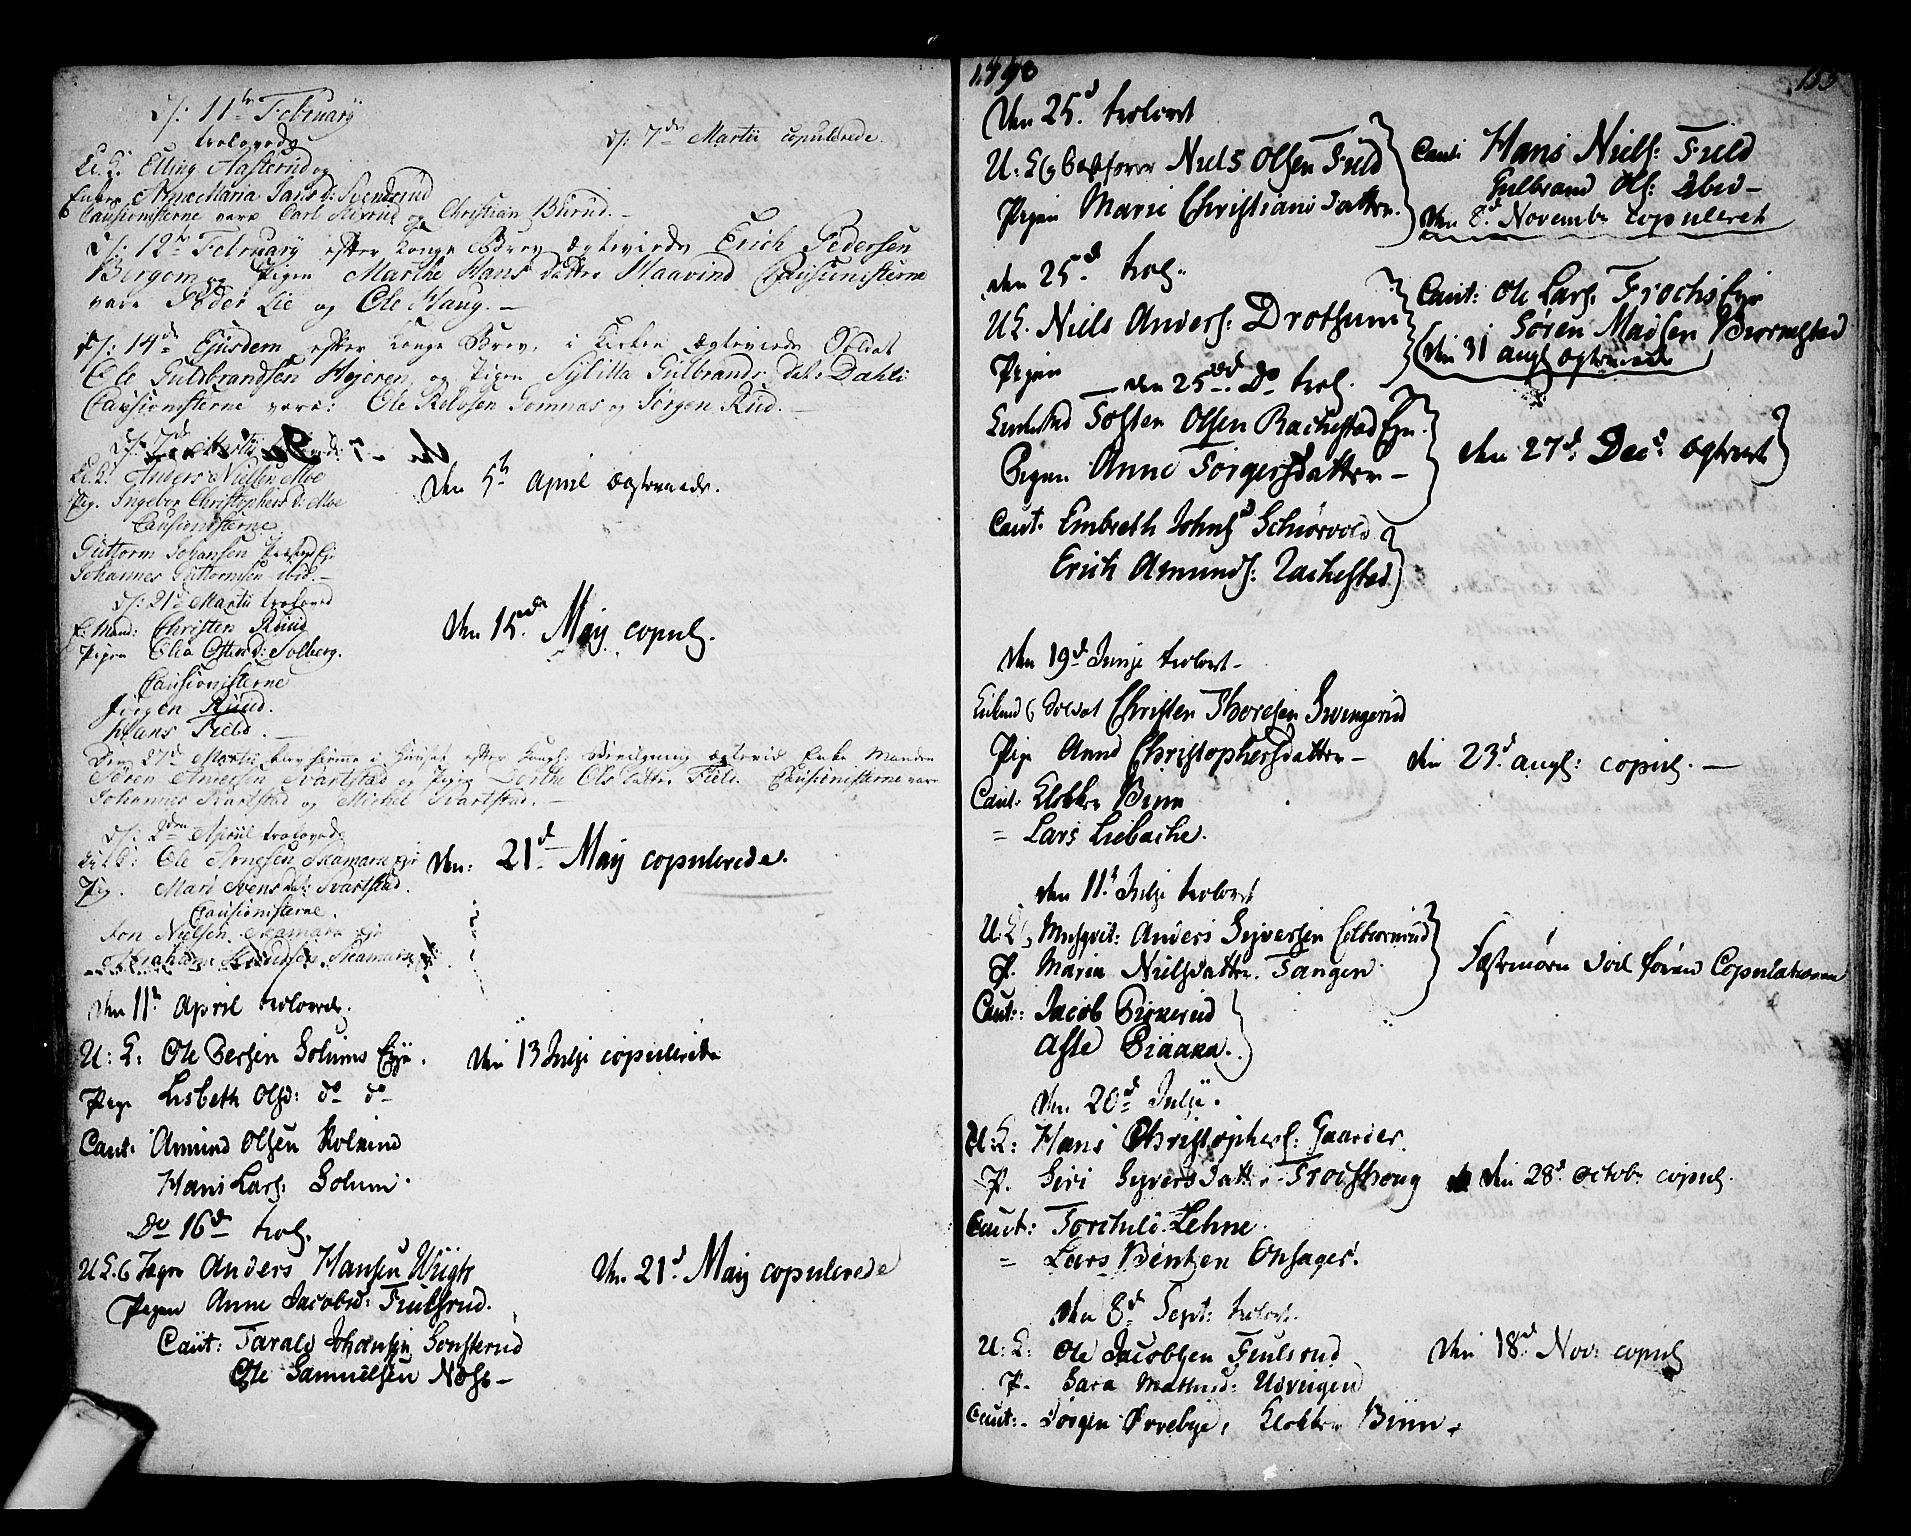 D/: 11te February
trolovede
U. K. Elling Hasterud og
Enken Anne Maria Jans d: Svenderud
Causionisterne vare Carl Stubrue og Christian Bhrud.
D/: 12te February efter Konge Brev Ægteviede Erich Pedersen
Bergem og Pigen Marthe Hans datter Haavind Causionisterne
vare Peder Lie og Ole Haug.
D/: 14de Ejusdem efter Konge Brev, i Kirken Ægteviede Soldat
Ole Guldbrandsen Hejeren og Pigen Sylitta Gulbrands dat: Dahli
Causionisterne vare: Ole Relofsen Gomnæs og Jørgen Rud.
D/: 7de Martii copulerede
D/: 7de Martii
U. K. Anders Nielsen Moe
Pig. Ingebor Christophers d: Moe
Causionisterne
Guttorm Johansen
Johannes Guttormsen ibid.
Den 5te April ægteviede.
D/: 21de Martii troloved
E. Mand: Christen Ruud
Pigen Elia Ostens d: Solberg.
Causionisterne
Jørgen Ruud.
Hans Field.
Den 15de Maij copul.
Den 27de Martii blev hieme i Huuset efter Kongl: Bevilgning ægtevied Enke Manden
Søren Andersen Svartstad og Pige Dorthe Ols datter Field. Causionisterne vare
Johannes Svartstad og Michel Svartstad.
D/: 2den April trolovede
U. K: Ole Arnesen Skamara Eje
Pig. Mari Svens dat: Svartstad.
Causionisterne.
Jon Nielsen Skamara Eje
Abraham Pedersen Skamara
Den 21d Maij copulerede.
Den 11te April trolovede.
U: K: Ole Persen Solums Eje.
Pige Lisbeth Olsd: do do
Caut. Amund Olsen Rolerud
Hans Lars. Solum.
Den 13 Julii copulerede
Do 16d trol.
U K. & Jegre Anders Hansen Wiigh
Pigen Anne Jacobsd: Fiulsrud.
Caut: Tarald Johansen Sønsterud
Ole Samuelsen Næss
Den 21d Maij copulerede
1793
153
Den 25d trolovet
U: K & Giestfører Niels Olsen Field
Pigen Marie Christians datter.
Caut: Hans Niels: Field
Gulbrand Ols: ibid
Den 8d Novembr copuleret
den 25d trol.
U K. Niels Anders: Drotsum
Pigen
Caut: Ole Lars. Frochs Eje
Søren Madsen Biørnstad
Den 31 augl ægteviede
den 25de Do trol.
Enkemd Tosten Olsen Rachestad Eje
Pigen Anne Torgersdatter
Caut. Embreth Johns. Schiørvold
Erich Amunds: Rachestad
den 27d Dec: ægteviet
Den 19d Junii trolovet
Enkemd & Soldat Christen Thoresen Svingerud
Pige Anne Christophersdatter
Caut: Klokker Binn
= Lars Liebache.
den 23d augl: copul.
den 11t Julii trolovet
U. K. Musqvit: Anders Syversen Colbiørnrud
P. Maria Nielsdatter Tangen
Caut: Jacob Pirkerud
Asle Piaaka.
Fæstmøen død føren Copulationen
Den 20d Julii.
U: K: Hans Christophers: Gaarder
P. Siri Syversdatter Froishoug
Caut: Toschild Lehne.
= Lars Bentzen Onsager.
den 28d Octobr copul.
den 8d Sept: trolovt.
U: K: Ole Jacobsen Fiulsrud
P. Sara Mathisd: Udvingen
Caut: Jørgen Ørrebye, Klokker Binn
Den 18d Nov: copul